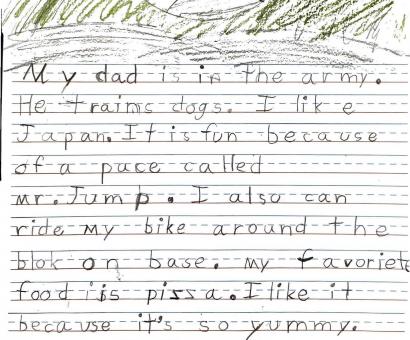 My dad is in the army.
He trains dogs. I like
Japan. It is fun because
of a pace called
mr. Jump. I also can
ride my bike around the
blok on base. my favoriet
food is pizza. I like it
because it's so yummy.